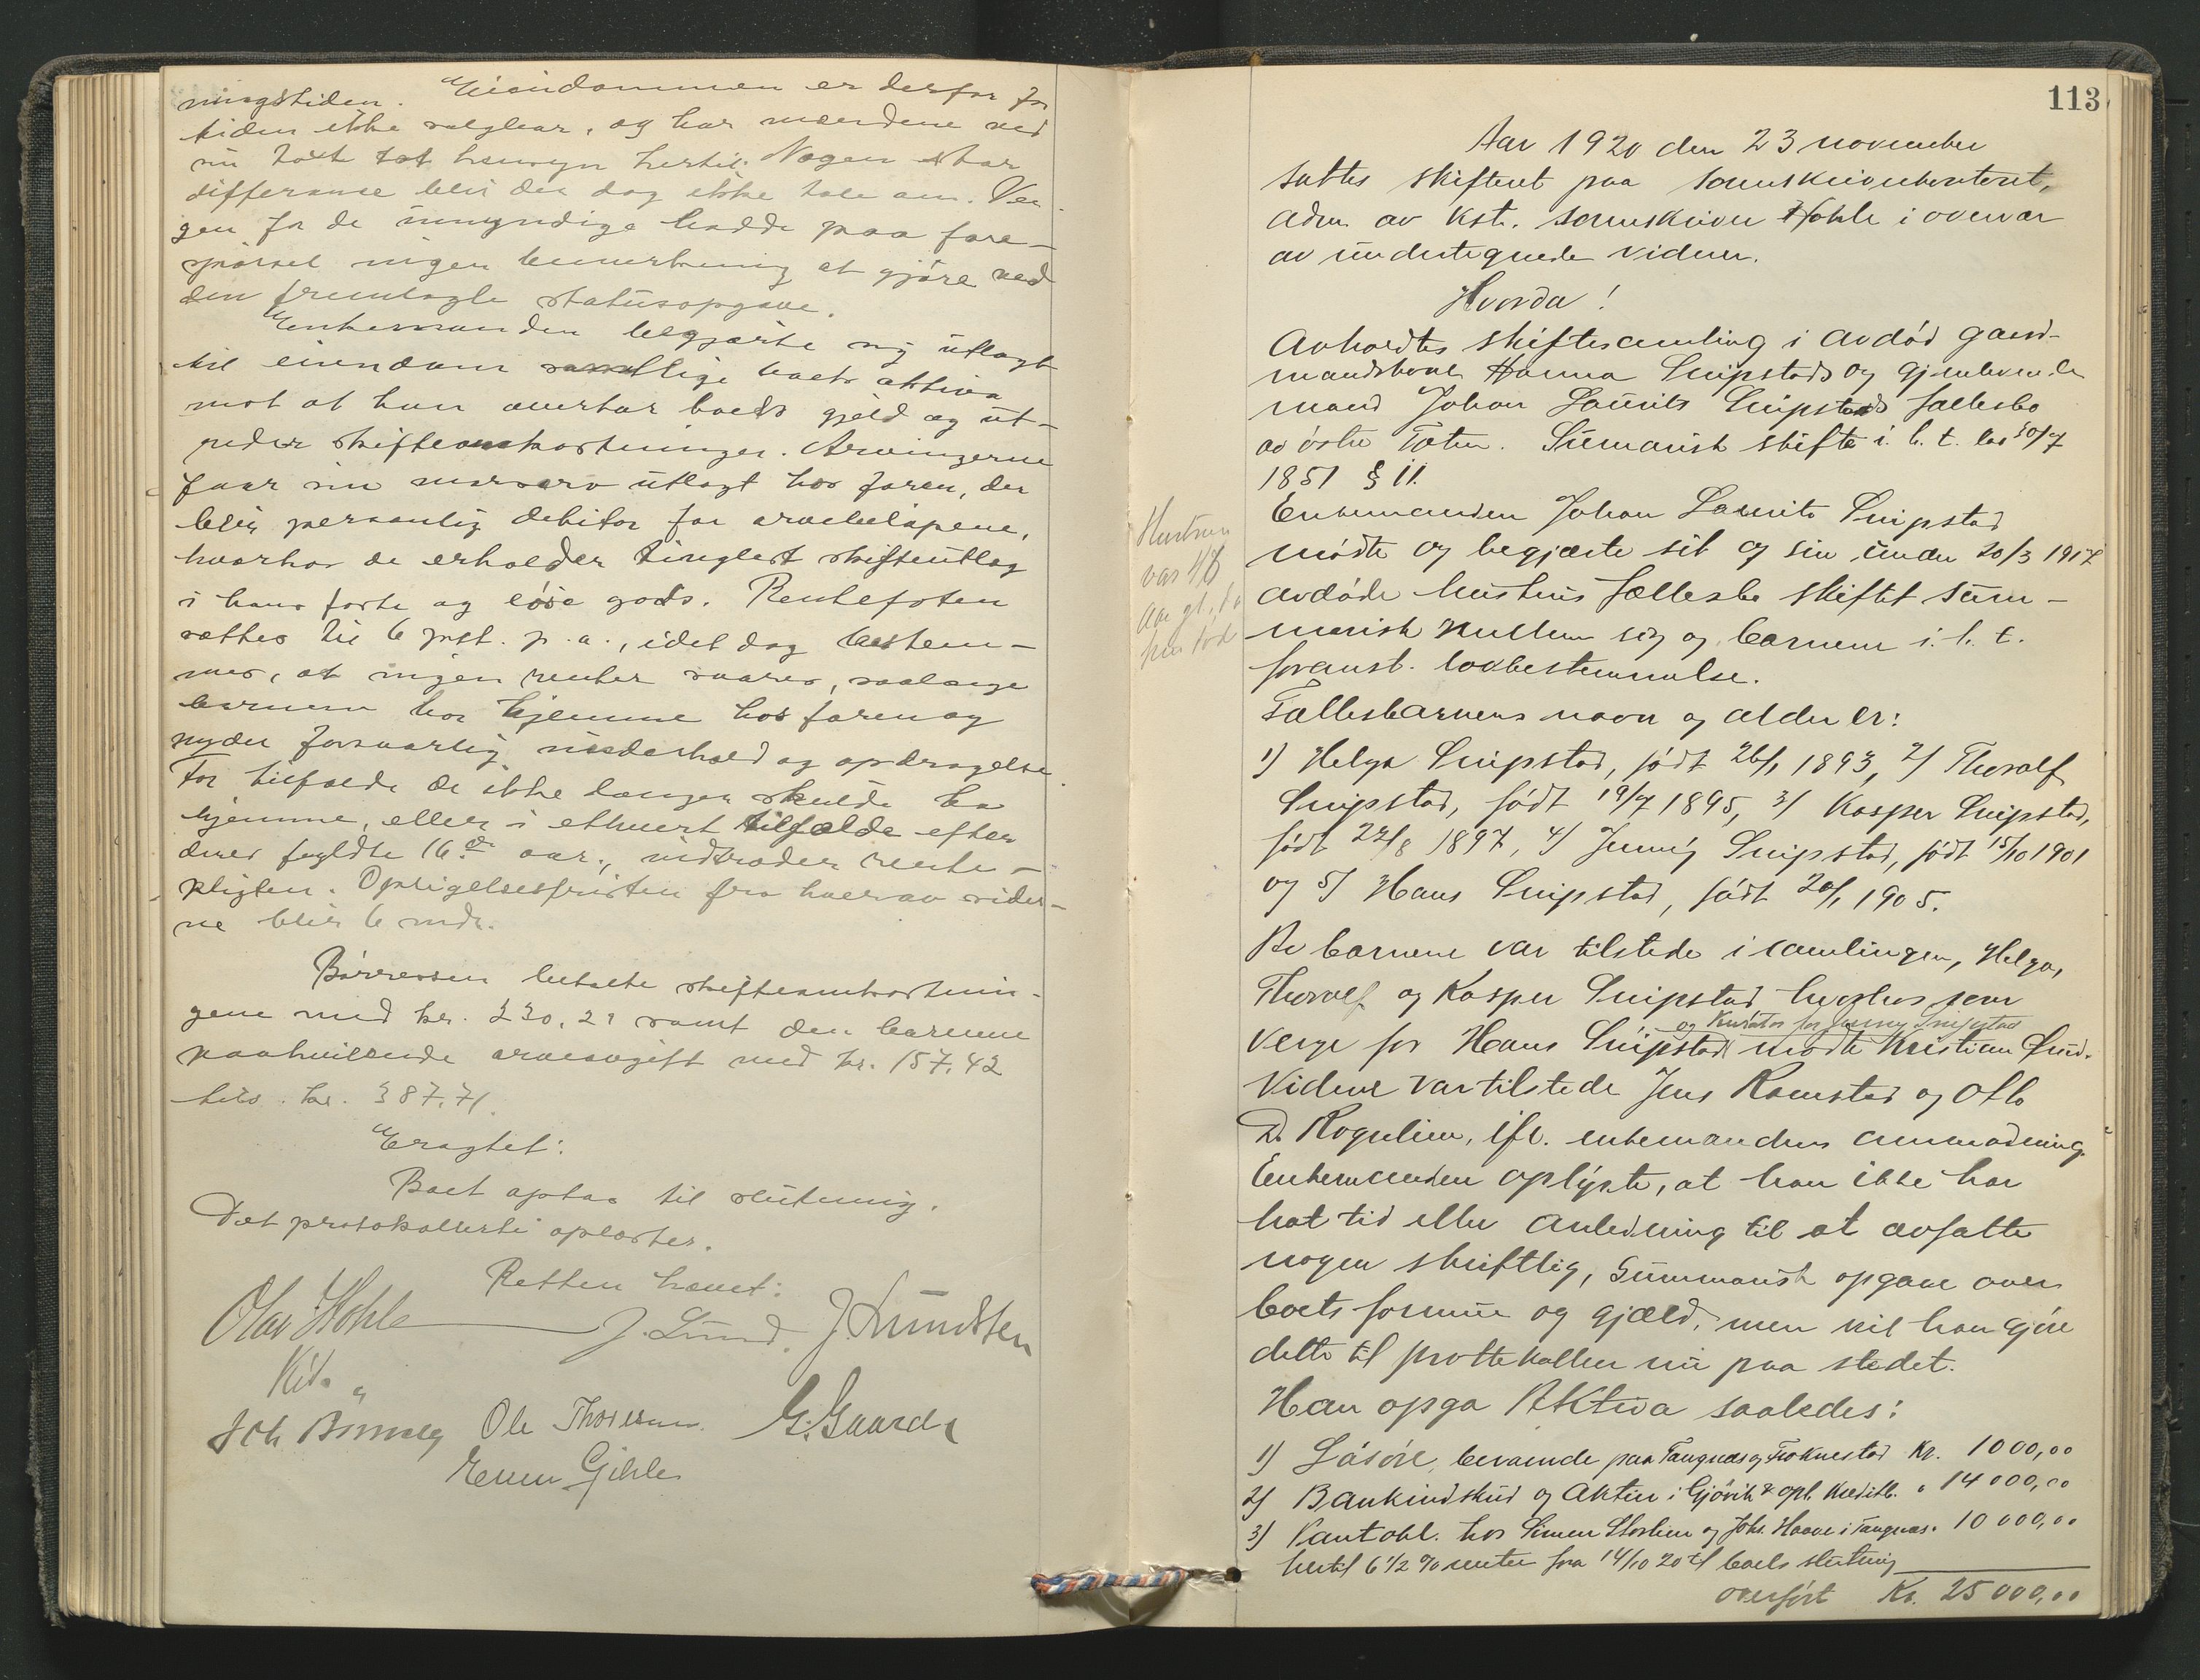 ningstiden. Eiendommen er derfor for
tiden ikke salgbar, og har mændene ved
sin takst tat hensyn hertil. Nogen stor
differanse blir der dog ikke tale om. Ver
gen for de umyndige hadde paa fore-
spørsel ingen bemerkning at gjøre ved
den fremlagte statusopgave.
Enkemanden begjærte sig utlagt
til eiendom samtlige boets aktiva
mot at han overtar boets gjæld og ut-
reder skifteomkostninger. Arvingerne
faar sin morsarv utlagt hos faren, der
blir personlig debitor for arvebeløpene,
hvorhos de erholder tinglæst skifteutlæg
i hans faste og løse gods. Rentefoten
sættes til 6 pst. p.a., idet dog bestem-
mes, at ingen renter svares, saalænge
barnene bor hjemme hos faren og
nyder forsvarlig underhold og opdragelse.
For tilfælde de ikke længer skulde bo
hjemme, eller i ethvert tilfælde efter
deres fyldte 16de aar, indtræder rente-
pligten. Opsigelsesfristen fra hver av sider-
ne blir 6 mdr.
Børresen betalte skifteomkostnin-
gene med kr. 230.29 samt den barnene
paahvilende arveavgift med kr. 157.42
tils. kr. 387.71.
Eragtet:
Boet optas til slutning.
Det protokollerte oplæstes.
Retten hævet:
Olav Hohle J. Lund. J. Lundsten
Kst.
Joh Ole Thoresen G. Gaarder
Even Gihle
113
Aar 1920 den 23 november
sattes skifteret paa sorenskriverkontoret,
adm. av kst. sorenskriver Hohle i overvær
av undertegnede vidner.
Hvorda!
Avholdtes skiftesamling i avdød gaard-
mandskone Hanna Snipstads og gjenlevende
mand Johan Laurits Snipstads fællesbo
av østre Toten. Summarisk skifte i h. t. lov 30/7
1851 § 11.
Enkemanden Johan Laurits Snipstad
mødte og begjærte sit og sin under 20/3 1917
avdøde hustrus fællesbo skiftet sum-
marisk mellem sig og barnene i. h. t.
foranst. lovbestemmelse.
Hustruen
var 48
aar gl. da
hun døde
Fællesbarnens navn og alder er:
1) Helga Snipstad, født 26/1 1893, 2/ Thoralf
Snipstad, født 19/7 1895, 3/ Kasper Snipstad,
født 22/8 1897, 4/ Jenny Snipstad, født 15/10 1901
og 5/ Hans Snipstad, født 20/1 1905.
Av barnene var tilstede i samlingen, Helga,
Thoralf og Kasper Snipstad hvorhos som
og Kurator for Jenny Snipstad
verge for Hans Snipstad mødte Kristian Lund.
Vidner var tilstede Jens Ramstad og Otto
D. Rognlien, efter enkemandens anmodning.
Enkemanden oplyste, at han ikke har
hat tid eller anledning til at avfatte
nogen skriftlig, summarisk opgave over
boets formue og gjæld, men vil han gjøre
dette til protokollen nu paa stedet.
Han opga Aktiva saaledes:
1) Løsøre, beroende paa Tangnæs og Froknestad Kr. 1000,00
2) Bankindskud og Aktier i Gjøvik & opl. Kreditb. " 14 000,00
3) Pantobl. hos Simen Storlien og Johs. Haave i Tangnæs. 10 000,00
hertil 6 1/2 % renter fra 14/10 20 til boets slutning
overført Kr. 25 000,00